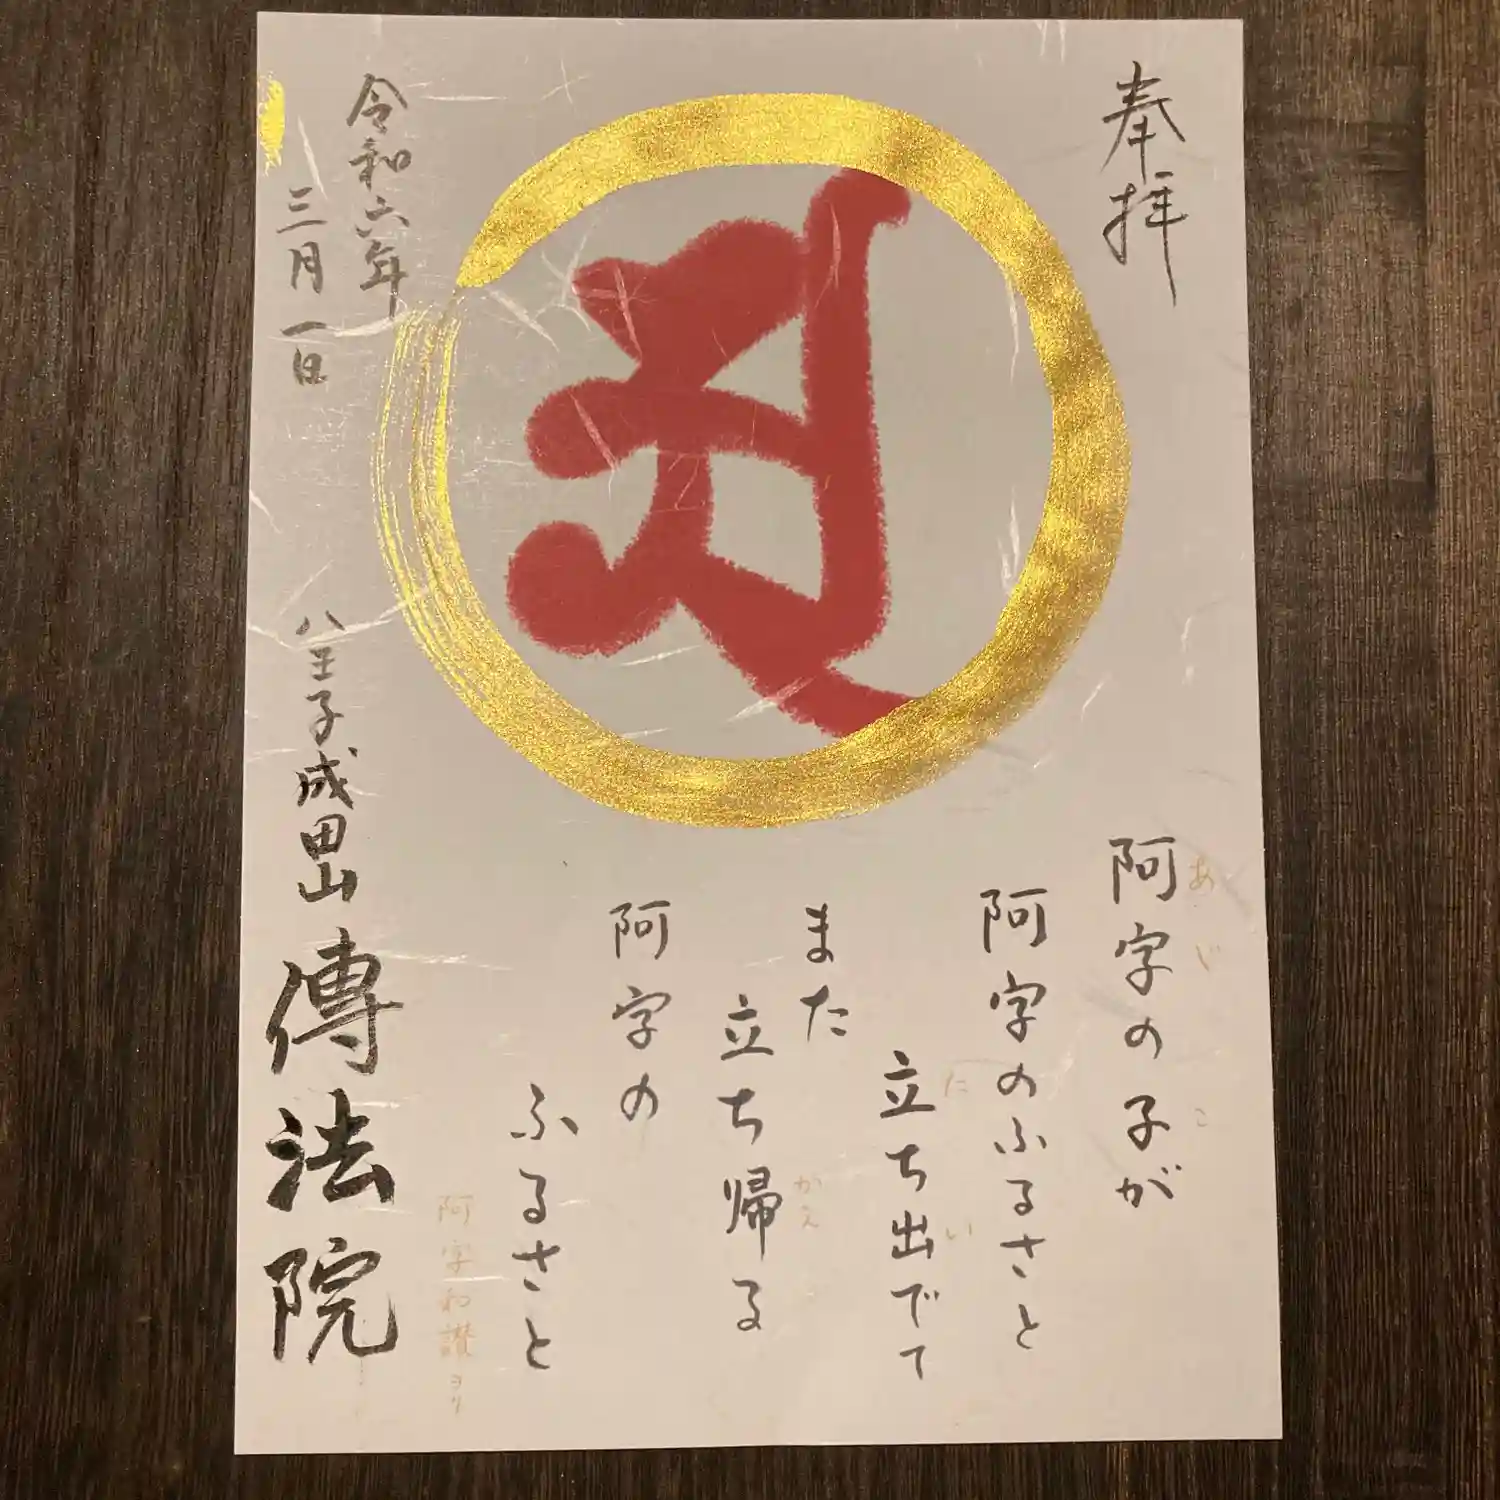 奉拝
阿字の子が
あじ こ
阿字のふるさと
立ち出でて
たい
また
立ち帰る
かえ
阿字の
ふるさと
阿字和讃ヨリ
令和六年
三月一日
八王子成田山傳法院